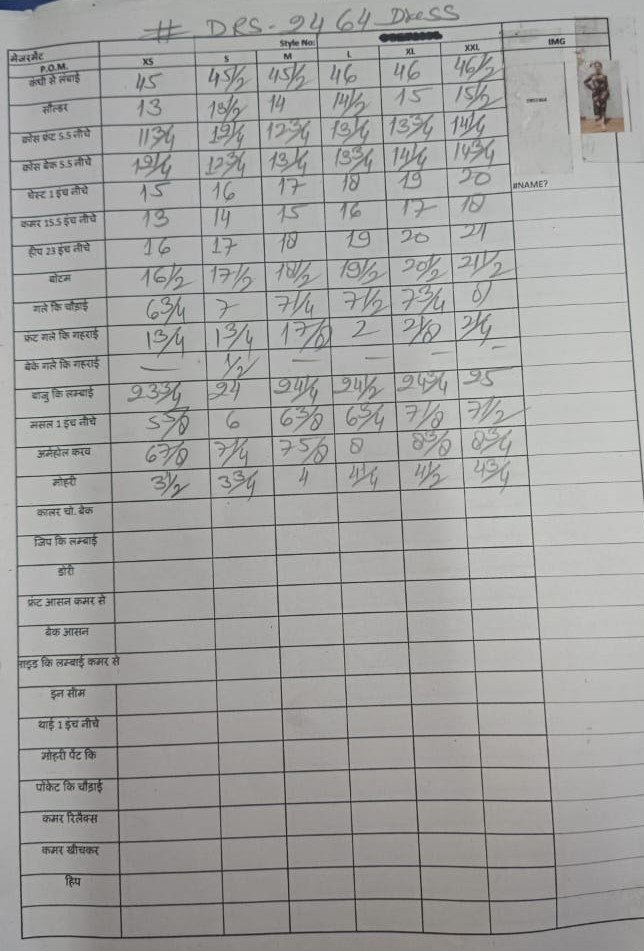 # DRS-9464 Dress
मेजरमेंट Style No:
P.O.M. XS S M L XL XXL IMG
कंधी से लंबाई 45 45 1/2 45 1/2 46 46 46 1/2
सोल्डर 13 13 1/2 14 14 1/2 15 15 1/2
क्रोस फ्रंट 5.5 नीचे 11 3/4 12 1/4 12 3/4 13 1/4 13 3/4 14 1/4
क्रोस बेक 5.5 नीचे 12 1/4 12 3/4 13 1/4 13 3/4 14 1/4 14 3/4
चेस्ट 1 इंच नीचे 15 16 17 18 19 20 #NAME?
कमर 15.5 इंच नीचे 13 14 15 16 17 18
हीप 23 इंच नीचे 16 17 18 19 20 21
बोटम 16 1/2 17 1/2 18 1/2 19 1/2 20 1/2 21 1/2
गले कि चौड़ाई 6 3/4 7 7 1/4 7 1/2 7 3/4 8
फ्रंट गले कि गहराई 1 3/4 1 3/4 1 7/8 2 2 1/8 2 1/4
बेके गले कि गहराई — 1/2 — — — —
बाजु कि लम्बाई 23 3/4 24 24 1/4 24 1/2 24 3/4 25
मसल 1 इंच नीचे 5 5/8 6 6 3/8 6 3/4 7 1/8 7 1/2
अर्महोल करव 6 7/8 7 1/4 7 5/8 8 8 3/8 8 3/4
मोहरी 3 1/2 3 3/4 4 4 1/4 4 1/2 4 3/4
कालर चो. बेक
जिप कि लम्बाई
डोरी
फ्रंट आसन कमर से
बैक आसन
साइड कि लम्बाई कमर से
इन सीम
थाई 1 इंच नीचे
मोहरी पेंट कि
पोकेट कि चौड़ाई
कमर रिलैक्स
कमर खीचकर
हिप